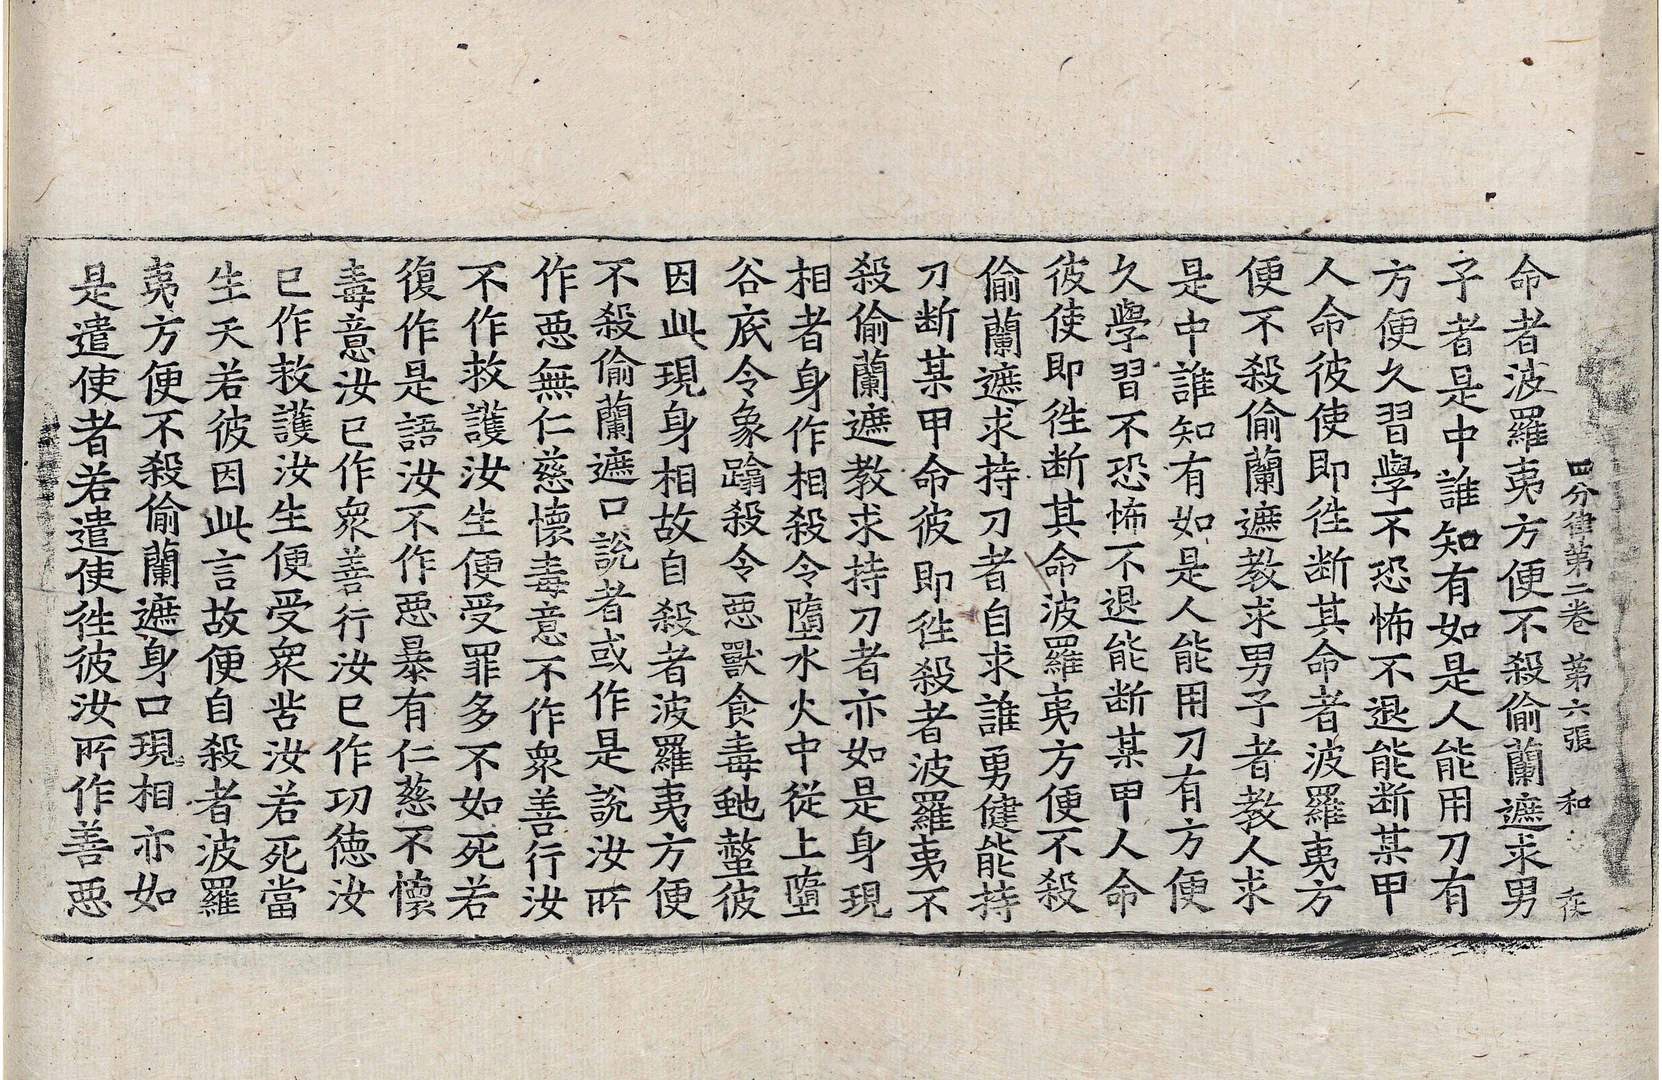 四分律第二卷 第六張 和
命者波羅夷方便不殺偷蘭遮求男
子者是中誰知有如是人能用刀有
方便久習學不恐怖不退能斷某甲
人命彼使即往斷其命者波羅夷方
便不殺偷蘭遮教求男子者教人求
是中誰知有如是人能用刀有方便
久學習不恐怖不退能斷某甲人命
彼使即往斷其命波羅夷方便不殺
偷蘭遮求持刀者自求誰勇健能持
刀斷某甲命彼即往殺者波羅夷不
殺偷蘭遮教求持刀者亦如是身現
相者身作相殺令墮水火中從上墮
谷底令象蹋殺令惡獸食毒虵螫彼
因此現身相故自殺者波羅夷方便
不殺偷蘭遮口說者或作是說汝所
作惡無仁慈懷毒意不作衆善行汝
不作救護汝生便受罪多不如死若
復作是語汝不作惡暴有仁慈不懷
毒意汝已作衆善行汝已作功德汝
已作救護汝生便受衆苦汝若死當
生天若彼因此言故便自殺者波羅
夷方便不殺偷蘭遮身口現相亦如
是遣使者若遣使往彼汝所作善惡